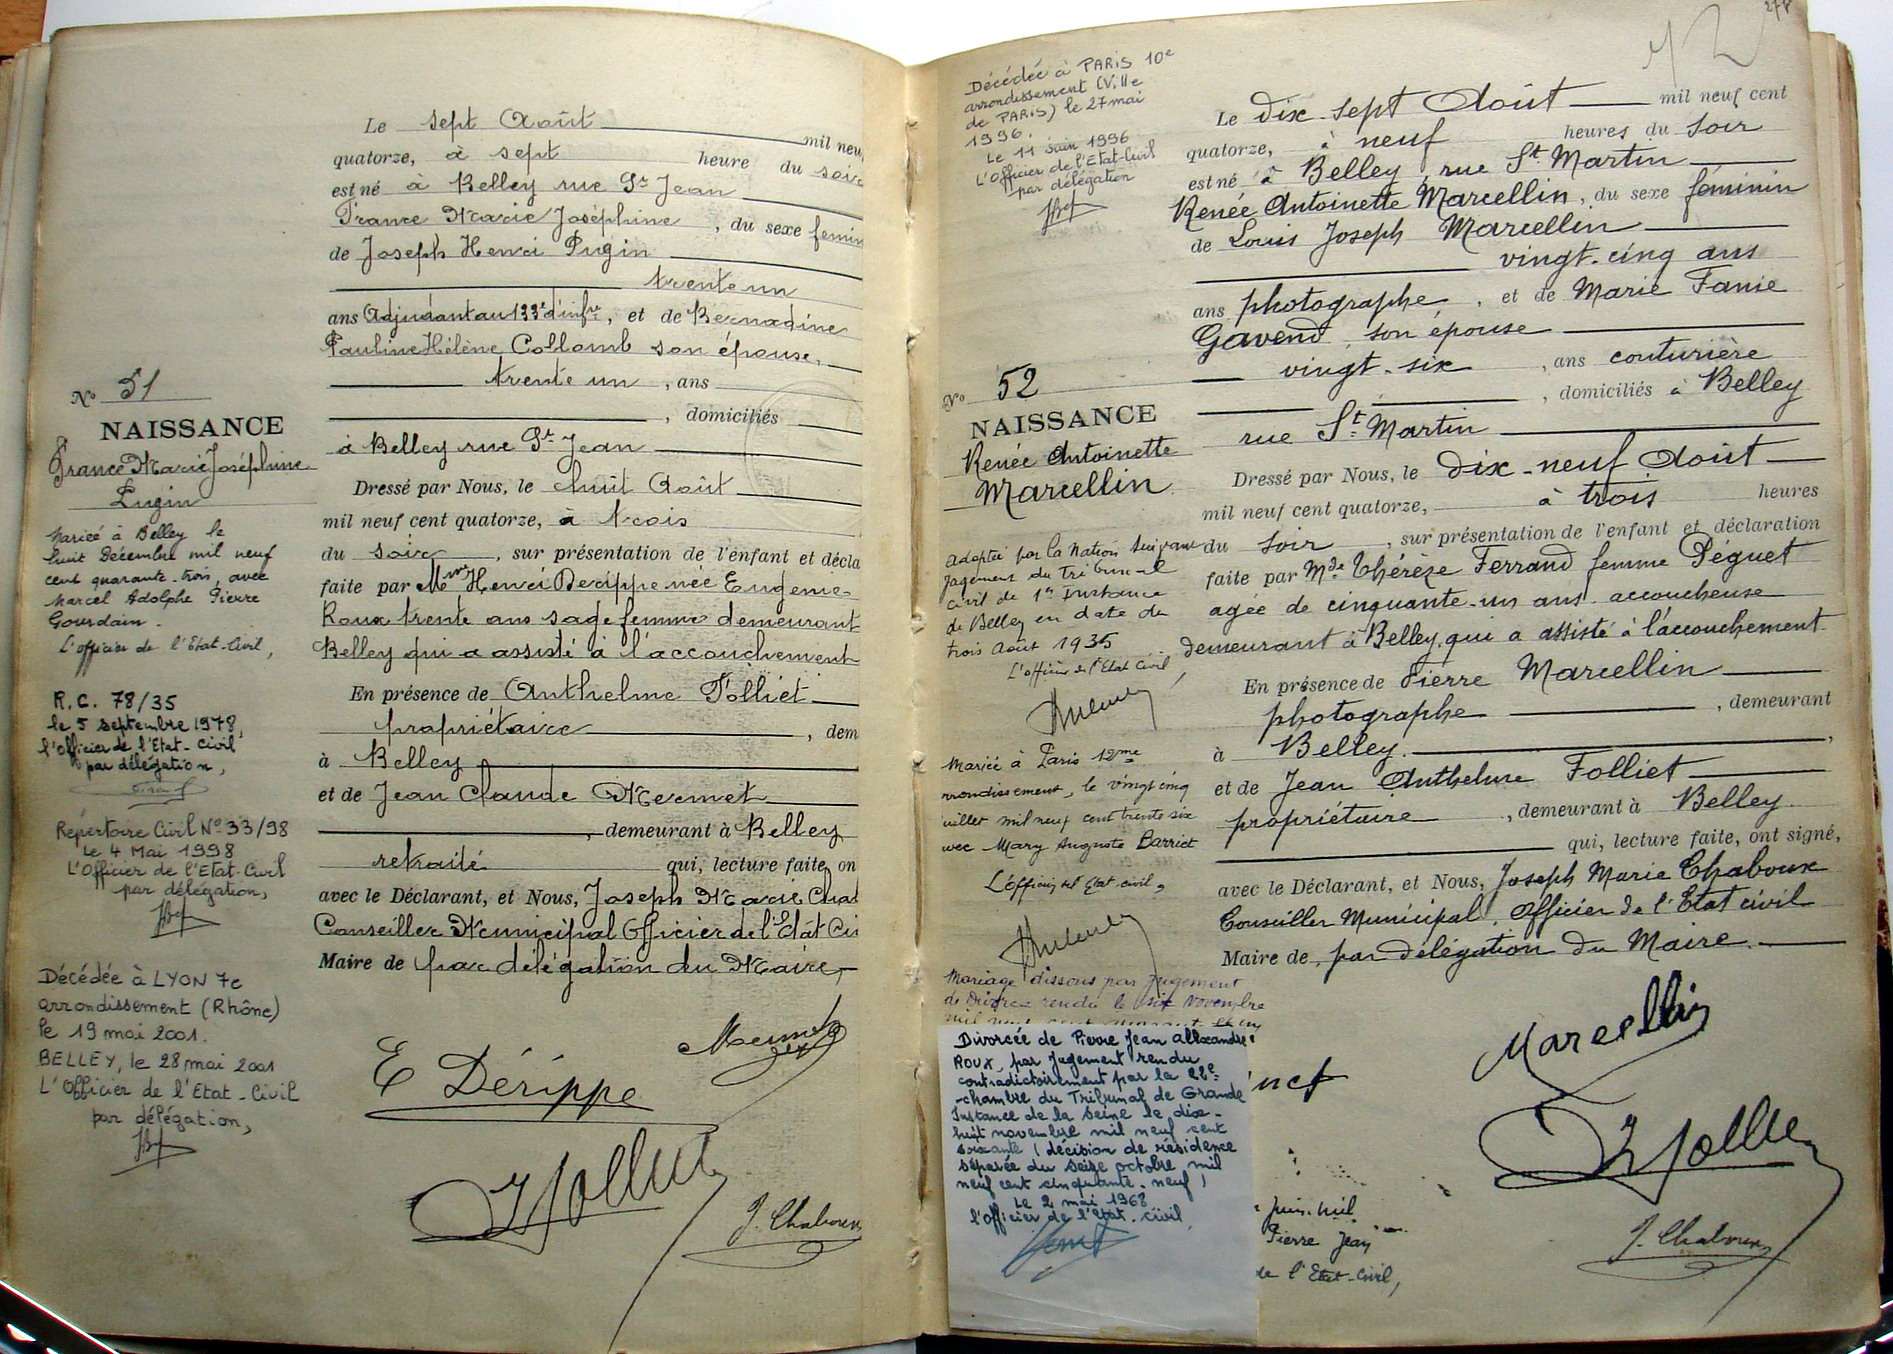 Le sept Août mil neu
quatorze, à sept heure du soir
est né à Belley rue St Jean
France Marie Joséphine, du sexe femin
de Joseph Henri Pugin
trente un
ans Adjudant au 133e d'infie, et de Bernadine
Pauline Hélène Collomb son épouse,
trente un, ans
, domiciliés
à Belley rue St Jean
Dressé par Nous, le huit Août
mil neuf cent quatorze, à trois
du soir, sur présentation de l'enfant et décla
faite par Mme Henri Derippe née Eugenie
Roux trente ans sage femme demeurant
Belley qui a assisté à l'accouchement
En présence de Anthelme Folliet
propriétaire, dem
à Belley
et de Jean Claude Mermet
, demeurant à Belley
retraité qui, lecture faite, on
avec le Déclarant, et Nous, Joseph Marie Chab
Conseiller Municipal Officier de l'Etat Ci
Maire de par délégation du Maire,
Mermet
E Dérippe
Folliet
J. Chaboux
No 51
NAISSANCE
France Marie Joséphine
Pugin
Mariée à Belley le
huit Décembre mil neuf
cent quarante-trois, avec
Marcel Adolphe Pierre
Gourdain.
L'officier de l'Etat-Civil,
R.C. 78/35
le 5 septembre 1978,
l'officier de l'Etat-Civil
par délégation,
Répertoire Civil No 33/98
Le 4 Mai 1998
L'Officier de l'Etat-Civil
par délégation,
Décédée à LYON 7e
arrondissement (Rhône)
le 19 mai 2001.
BELLEY, le 28 mai 2001
L'Officier de l'Etat-Civil
par délégation,
278
Décédée à PARIS 10e
arrondissement (Ville
de PARIS) le 27 mai
1996.
Le 11 Juin 1996
L'Officier de l'Etat-Civil
par délégation
Le dix sept Août mil neuf cent
quatorze, à neuf heures du soir
est né à Belley, rue St Martin
Renée Antoinette Marcellin, du sexe féminin
de Louis Joseph Marcellin
vingt-cinq ans
ans photographe, et de Marie Fanie
Gavend, son épouse
vingt-six, ans couturière
, domiciliés à Belley
rue St Martin
Dressé par Nous, le dix-neuf Août
mil neuf cent quatorze, à trois heures
du soir, sur présentation de l'enfant et déclaration
faite par Mde Thérèse Ferrand femme Péguet
agée de cinquante-un ans accoucheuse
demeurant à Belley, qui a assisté à l'accouchement
En présence de Pierre Marcellin
photographe, demeurant
à Belley.
et de Jean Anthelme Folliet
propriétaire, demeurant à Belley
qui, lecture faite, ont signé,
avec le Déclarant, et Nous, Joseph Marie Chaboux
Conseiller Municipal, Officier de l'Etat civil
Maire de par délégation du Maire.
Marcellin
Folliet
J. Chaboux
No 52
NAISSANCE
Renée Antoinette
Marcellin
Adoptée par la Nation suivant
jugement du Tribunal
civil de 1re Instance
de Belley en date du
trois Août 1935
L'officier de l'Etat Civil,
Mariée à Paris 12me
rrondissement, le vingt cinq
uillet mil neuf cent trente six
avec Mary Auguste Barriet
L'officier de l'Etat-civil,
Mariage dissous par jugement
de Divorce rendu le six Novembre
Divorcée de Pierre Jean Allexandre
ROUX, par jugement rendu
contradictoirement par la 22e
chambre du Tribunal de Grande
Instance de la Seine le dix-
huit novembre mil neuf cent
soixante (décision de résidence
séparée du seize octobre mil
neuf cent cinquante-neuf)
Le 2 mai 1968
l'officier de l'état-civil,
juin mil
Pierre Jean
de l'Etat-Civil,